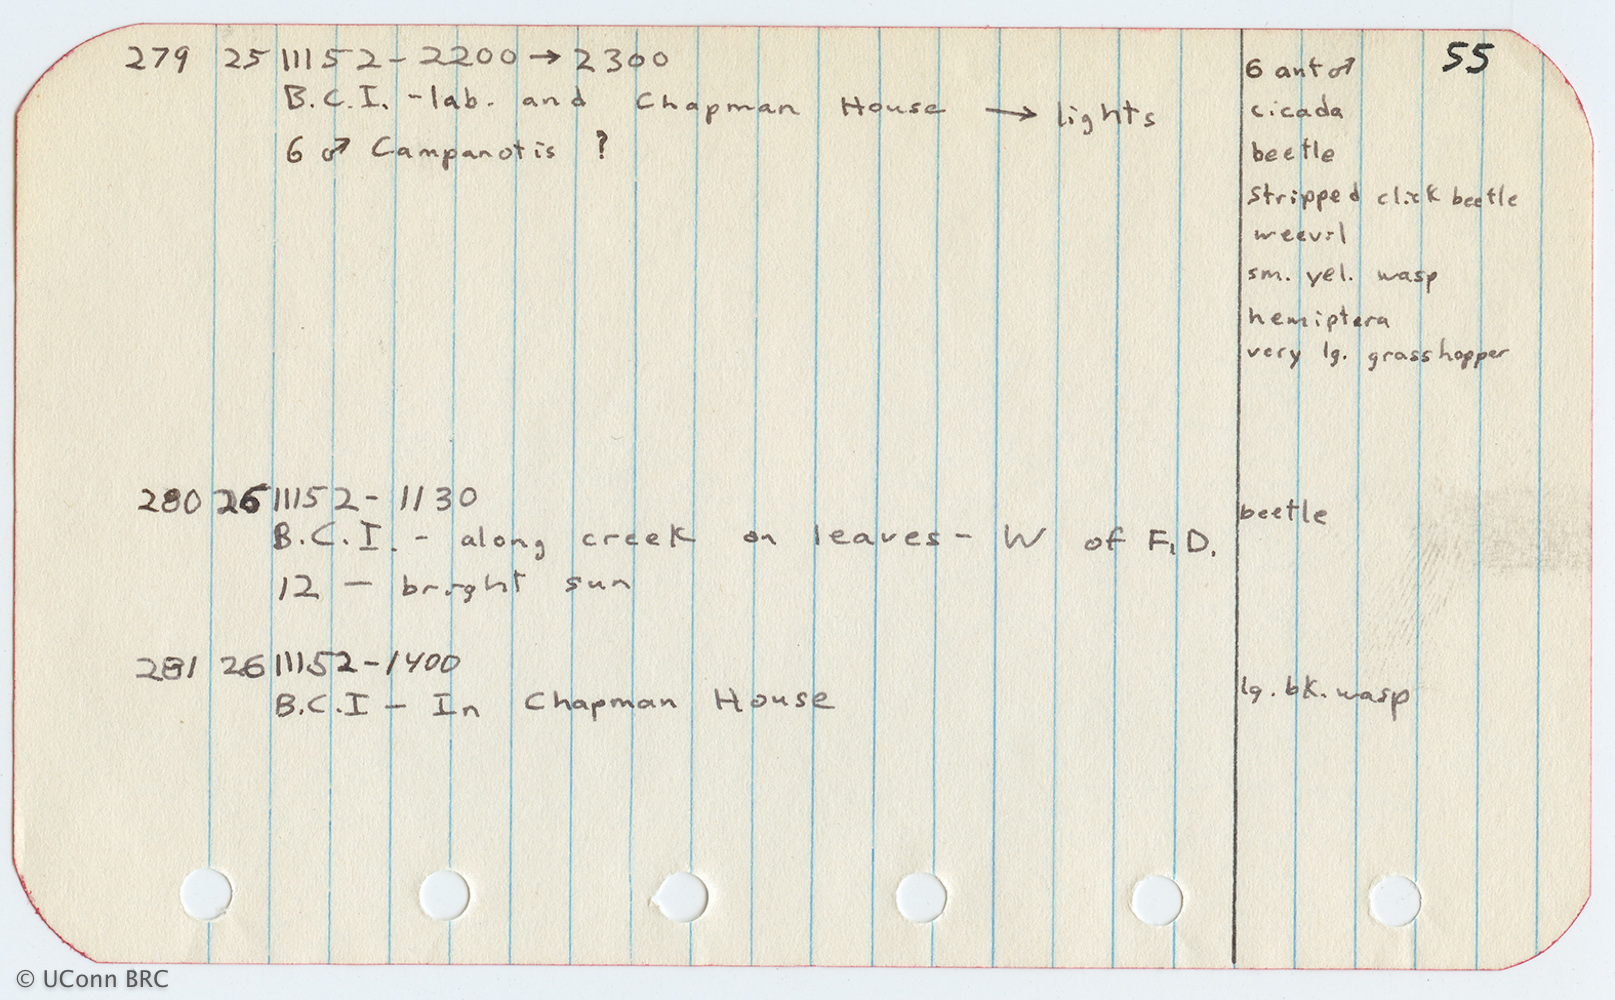 279 25 III 52 - 2200 → 2300
B.C.I. - lab. and Chapman House → lights
6 ♂ Campanotis ?
6 ant ♂
55
cicada
beetle
stripped click beetle
weevil
sm. yel. wasp
hemiptera
very lg. grasshopper
280 26 III 52 - 1130
B.C.I. - along creek on leaves - W of F.D.
12 - bright sun
beetle
281 26 III 52 - 1400
B.C.I - In Chapman House
lg. bk. wasp
© UConn BRC